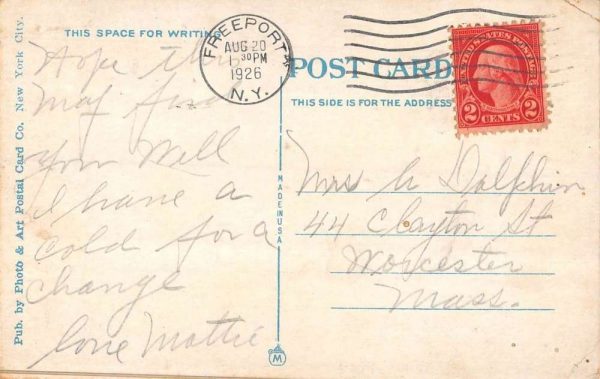 Pub. by Photo & Art Postal Card Co. New York City.
THIS SPACE FOR WRITING
Hope this
may find
you Well
I have a
cold for a
change
love Mattie
MADE IN USA
M
FREEPORT
AUG 20
30PM
1926
N.Y.
POST CARD
THIS SIDE IS FOR THE ADDRESS
UNITED STATES POSTAGE
2 CENTS 2
Mrs A Dolphin
44 Clayton St
Worcester
Mass.